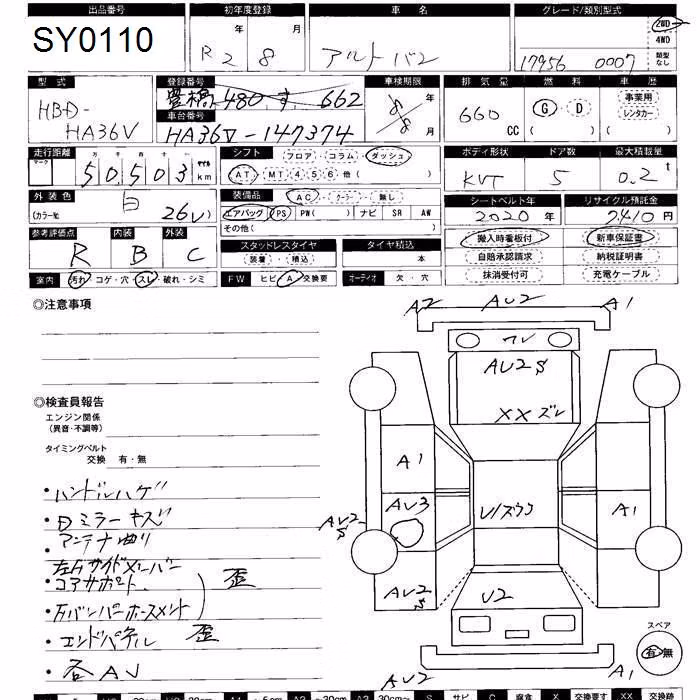 出品番号 初年度登録 車名 グレード/類別型式
SY0110 R 2 年 8 月 アルトバン 17956 0007 2WD 4WD 類型なし
型式 登録番号 車検期限 排気量 燃料 車歴
HBD-HA36V 豊橋 480 す 662 年 月 660 CC G・D ( ) 事業用 レンタカー ( )
車台番号
HA36V-147374
走行距離 シフト フロア・コラム・ダッシュ ボディ形状 ドア数 最大積載量
マーク 十 万 千 百 十 一 マイル km
50,503 AT・MT 4 5 6 他( ) KVT 5 0.2 t
外装色 装備品 AC・クーラー・無し シートベルト年 リサイクル預託金
(カラーNo. 白 26U) エアバッグ PS PW( ) ナビ SR AW 2020年 7410円
その他( )
参考評価点 内装 外装 搬入時看板付 新車保証書
R B C スタッドレスタイヤ タイヤ積込 自賠承認請求 納税証明書
装着・積込 本 抹消受付可 充電ケーブル
室内 汚れ・コゲ・穴・スレ・破れ・シミ FW ヒビ・A・交換要 オーディオ 欠・穴
◎注意事項
A2 AU2 A1
ワレ
AU2 S
XX ズレ
◎検査員報告
エンジン関係
(異音・不調等)
タイミングベルト
交換 有・無
A1
・ハンドルハゲ
AU3 A1
・日ミラーキズ
AU2 S
・アンテナ曲り
左右サイドメンバー
・コアサポート 歪
AU2 S U2
・バンパーホースメント
・エンドパネル 歪
スペア
有・無
・各AJ
AU2 A1